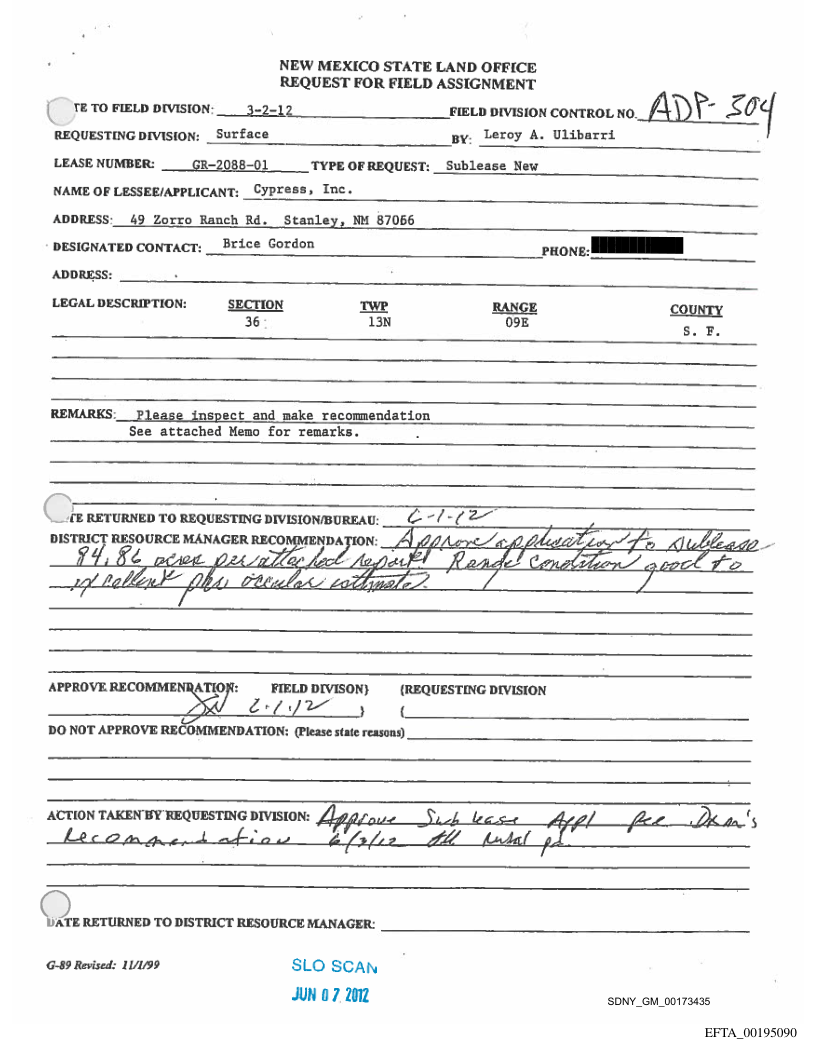 NEW MEXICO STATE LAND OFFICE
REQUEST FOR FIELD ASSIGNMENT
TE TO FIELD DIVISION: 3-2-12 FIELD DIVISION CONTROL NO. ADP-304
REQUESTING DIVISION: Surface BY: Leroy A. Ulibarri
LEASE NUMBER: GR-2088-01 TYPE OF REQUEST: Sublease New
NAME OF LESSEE/APPLICANT: Cypress, Inc.
ADDRESS: 49 Zorro Ranch Rd. Stanley, NM 87056
DESIGNATED CONTACT: Brice Gordon PHONE:
ADDRESS:
LEGAL DESCRIPTION: SECTION TWP RANGE COUNTY
36 13N 09E S. F.
REMARKS: Please inspect and make recommendation
See attached Memo for remarks.
TE RETURNED TO REQUESTING DIVISION/BUREAU: 6-1-12
DISTRICT RESOURCE MANAGER RECOMMENDATION: Approve application to sublease
84.86 acres per attached report. Range condition good to
excellent per occular estimate.
APPROVE RECOMMENDATION: FIELD DIVISON) (REQUESTING DIVISION
6.1.12 ) (
DO NOT APPROVE RECOMMENDATION: (Please state reasons)
ACTION TAKEN BY REQUESTING DIVISION: Approve Sublease Appl per DRM's
Recommendation 6/7/12
DATE RETURNED TO DISTRICT RESOURCE MANAGER:
G-89 Revised: 11/1/99
SLO SCAN
JUN 07 2012
SDNY_GM_00173435
EFTA_00195090